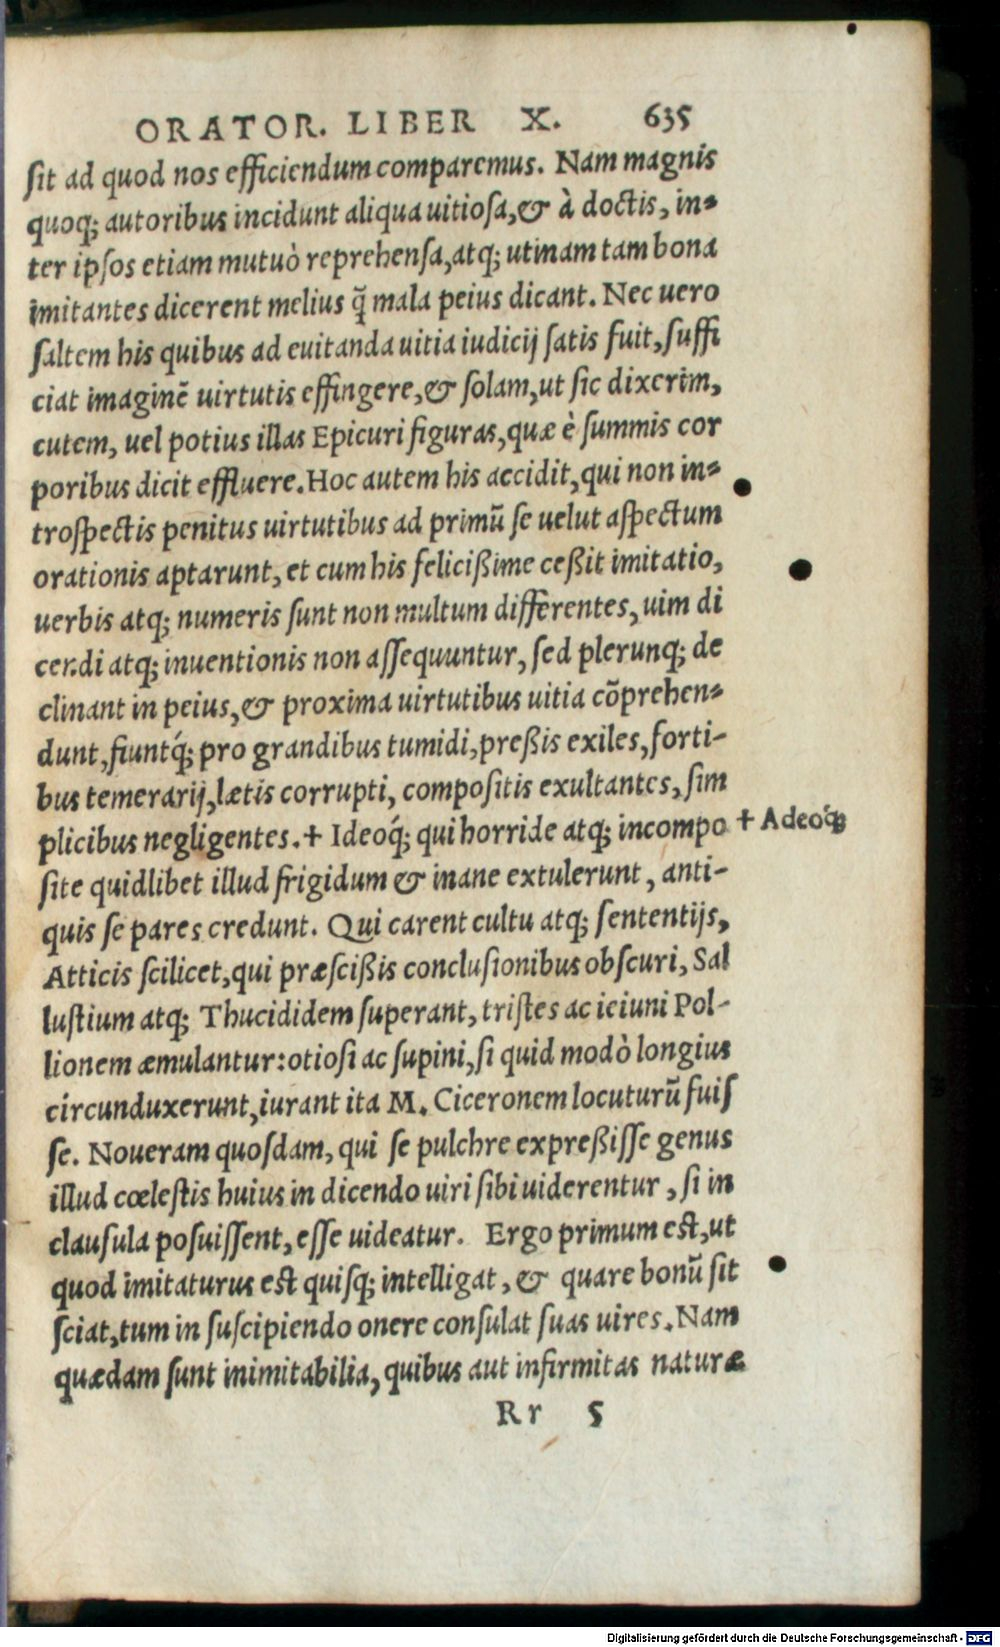 ORATOR. LIBER X. 635
ſit ad quod nos efficiendum comparemus. Nam magnis
quoq; autoribus incidunt aliqua uitioſa, & à doctis, in-
ter ipſos etiam mutuò reprehenſa, atq; utinam tam bona
imitantes dicerent melius q̃ mala peius dicant. Nec uero
ſaltem his quibus ad euitanda uitia iudicij ſatis fuit, ſuffi
ciat imaginẽ uirtutis effingere, & ſolam, ut ſic dixerim,
cutem, uel potius illas Epicuri figuras, quæ è ſummis cor
poribus dicit effluere. Hoc autem his accidit, qui non in-
troſpectis penitus uirtutibus ad primũ ſe uelut aſpectum
orationis aptarunt, et cum his feliciſsime ceſsit imitatio,
uerbis atq; numeris ſunt non multum differentes, uim di
cendi atq; inuentionis non aſſequuntur, ſed plerunq; de
clinant in peius, & proxima uirtutibus uitia cõprehen-
dunt, fiuntq́; pro grandibus tumidi, preſsis exiles, forti-
bus temerarij, lætis corrupti, compoſitis exultantes, ſim
plicibus negligentes. + Ideoq́; qui horride atq; incompo + Adeoq́;
ſite quidlibet illud frigidum & inane extulerunt, anti-
quis ſe pares credunt. Qui carent cultu atq; ſententijs,
Atticis ſcilicet, qui præſciſsis concluſionibus obſcuri, Sal
luſtium atq; Thucididem ſuperant, triſtes ac ieiuni Pol-
lionem æmulantur: otioſi ac ſupini, ſi quid modò longius
circunduxerunt, iurant ita M. Ciceronem locuturũ fuiſ
ſe. Noueram quoſdam, qui ſe pulchre expreſsiſſe genus
illud cœleſtis huius in dicendo uiri ſibi uiderentur, ſi in
clauſula poſuiſſent, eſſe uideatur. Ergo primum eſt, ut
quod imitaturus eſt quiſq; intelligat, & quare bonũ ſit
ſciat, tum in ſuſcipiendo onere conſulat ſuas uires. Nam
quædam ſunt inimitabilia, quibus aut infirmitas naturæ
Rr 5
Digitalisierung gefördert durch die Deutsche Forschungsgemeinschaft - DFG